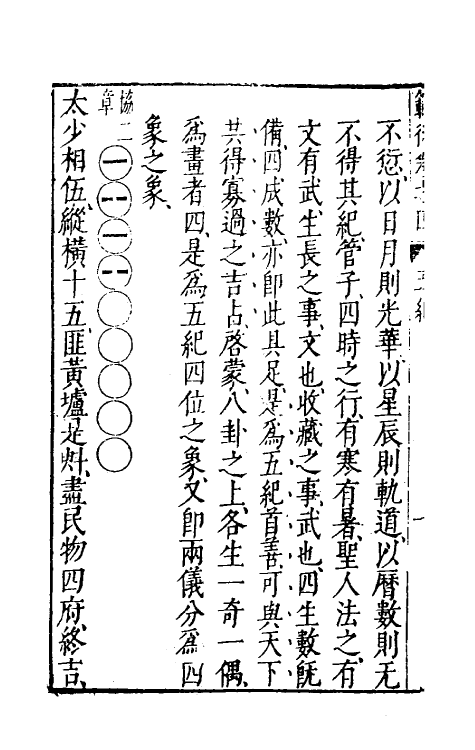 不愆以日月則光華以星辰則軌道以曆數則无
不得其紀管子四時之行有寒有暑聖人法之有
文有武生長之事文也收藏之事武也四生數既
備四成數亦即此具足是爲五紀首善可與天下
共得寡過之吉占啓蒙八卦之上各生一奇一偶
爲畫者四是爲五紀四位之象又即兩儀分爲四
象之象
協二章
太少相伍縱橫十五匪黃壚是㪺盡民物四府終吉